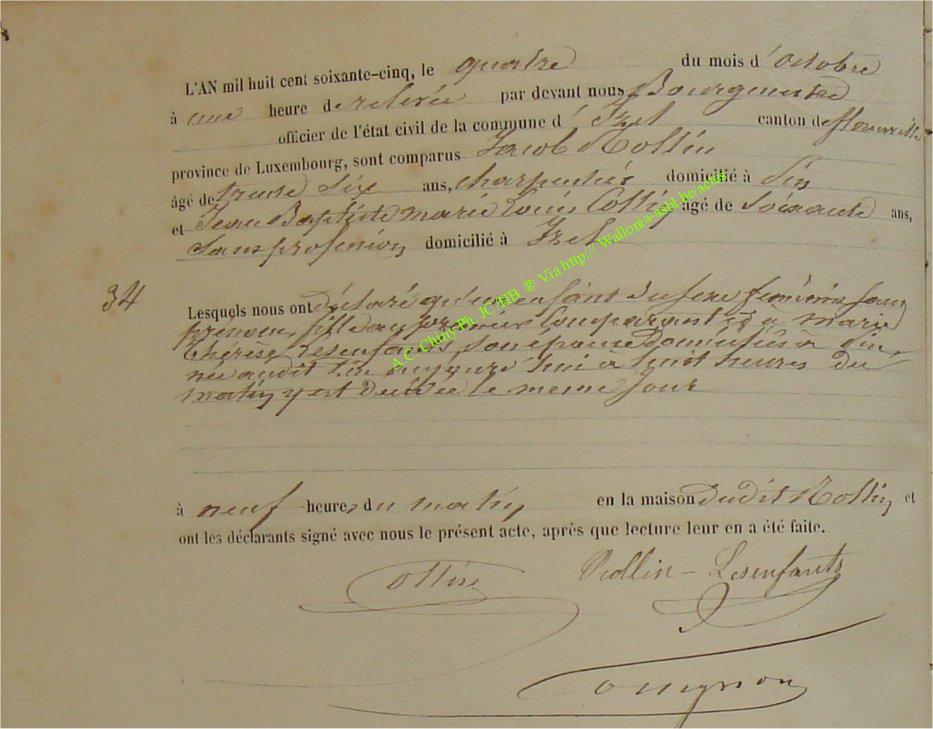 L'AN mil huit cent soixante-cinq, le quatre du mois d'octobre
à une heure de relevée par devant nous Bourgmestre
officier de l'état civil de la commune d'Izel canton de florenville
province de Luxembourg, sont comparus Jacob Rollin
âgé de trente six ans, charpentier domicilié à Pin
et Jean Baptiste marie Louis Collin âgé de Soixante ans,
Sans profession domicilié à Izel
34
Lesquels nous ont déclaré qu'un enfant du sexe féminin sans
prénom, fille du premier Comparant et à marie
thérèse Lesenfants, son épouse domiciliés à Pin,
née audit Pin aujourd'hui à huit heures du
matin y est décédée le meme jour
à neuf heures du matin en la maison dudit Rollin et
ont les déclarants signé avec nous le présent acte, après que lecture leur en a été faite.
Rollin - Lesenfants
A C Chiny Ph JC HB ® Via http:// Wallonia-asbl.be/actes